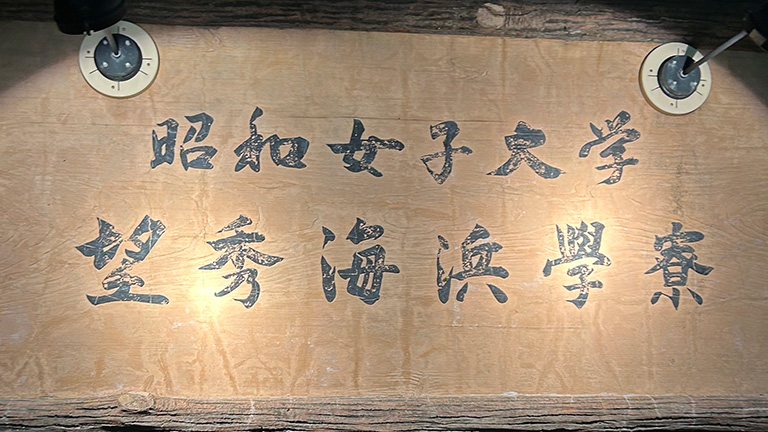 昭和女子大学
望秀海浜學寮